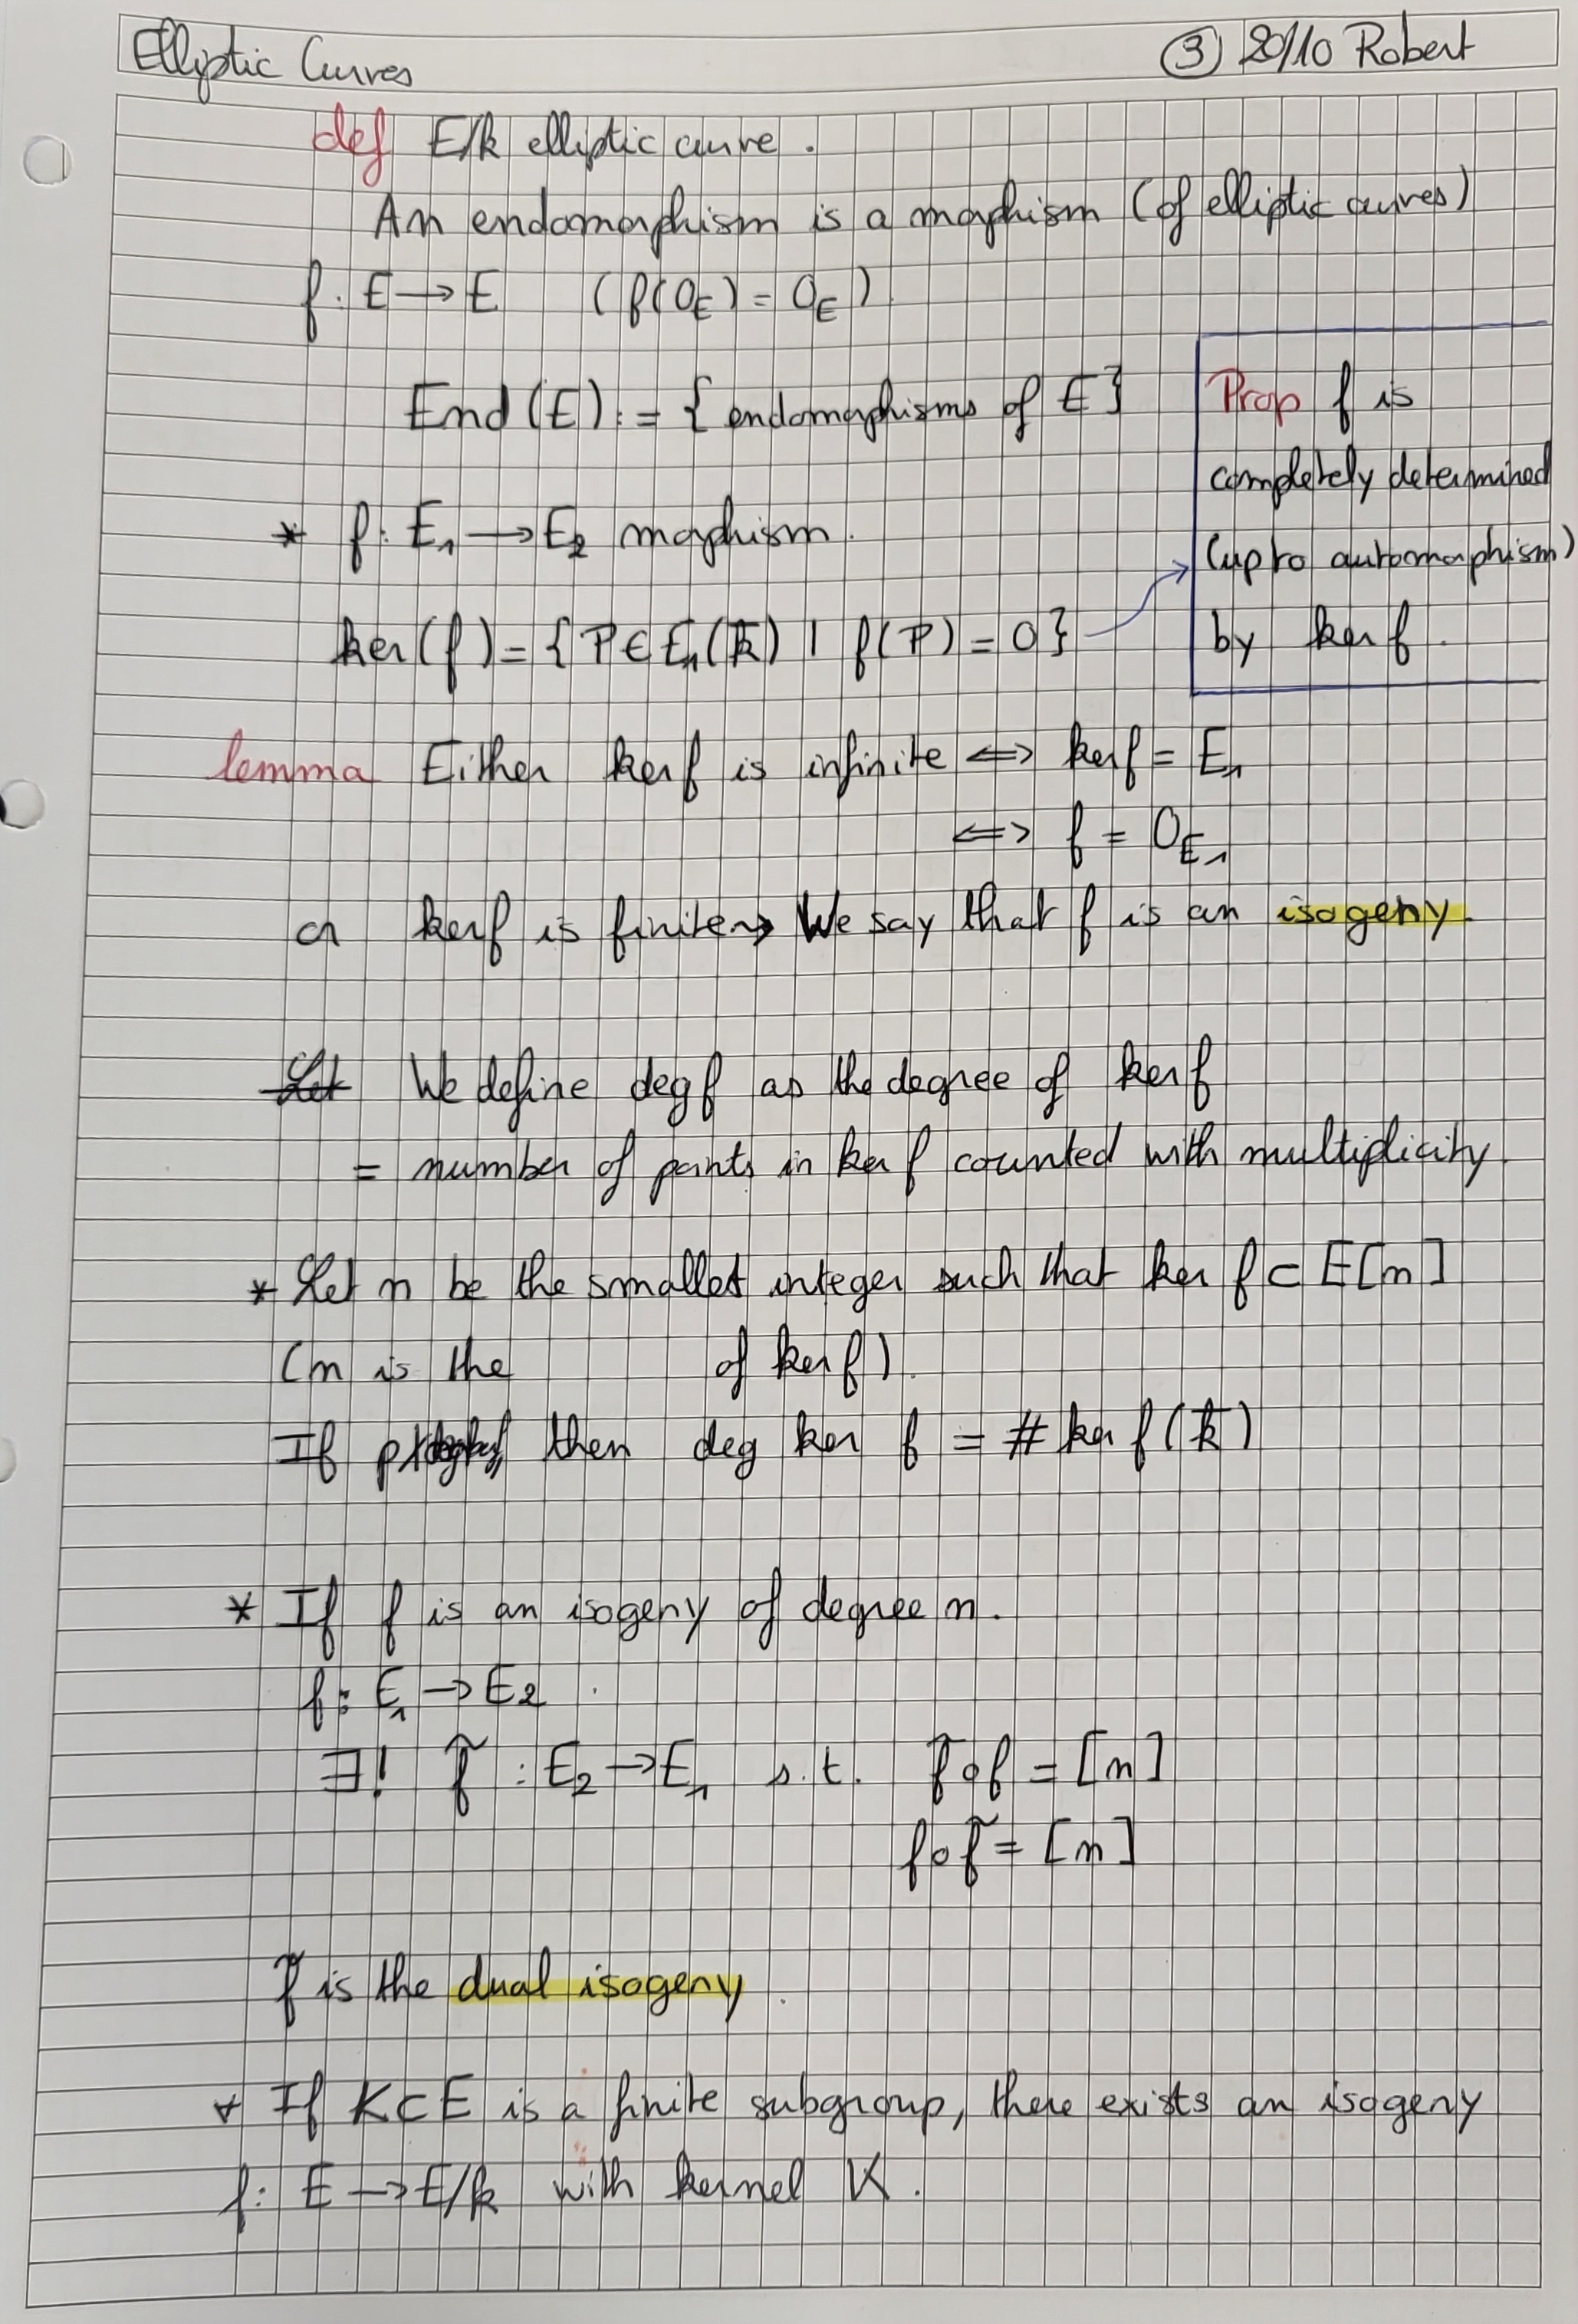 Elliptic Curves
③ 20/10 Robert
def E/k elliptic curve.
An endomorphism is a morphism (of elliptic curves)
f: E → E (f(O_E) = O_E)
End(E) := { endomorphisms of E }
* f: E₁ → E₂ morphism.
ker(f) = { P ∈ E₁(k̅) | f(P) = 0 }
Prop f is
completely determined
(up to automorphism)
by ker f.
lemma Either ker f is infinite ⟺ ker f = E₁
⟺ f = O_E₁
or ker f is finite → We say that f is an isogeny.
We define deg f as the degree of ker f
= number of points in ker f counted with multiplicity.
* Let n be the smallest integer such that ker f ⊂ E[n]
(n is the of ker f).
If p∤ then deg ker f = # ker f(k̅)
* If f is an isogeny of degree n.
f: E₁ → E₂.
∃! f̃ : E₂ → E₁ s.t. f̃∘f = [n]
f∘f̃ = [n]
f̃ is the dual isogeny.
* If K ⊂ E is a finite subgroup, there exists an isogeny
f: E → E/k with kernel K.